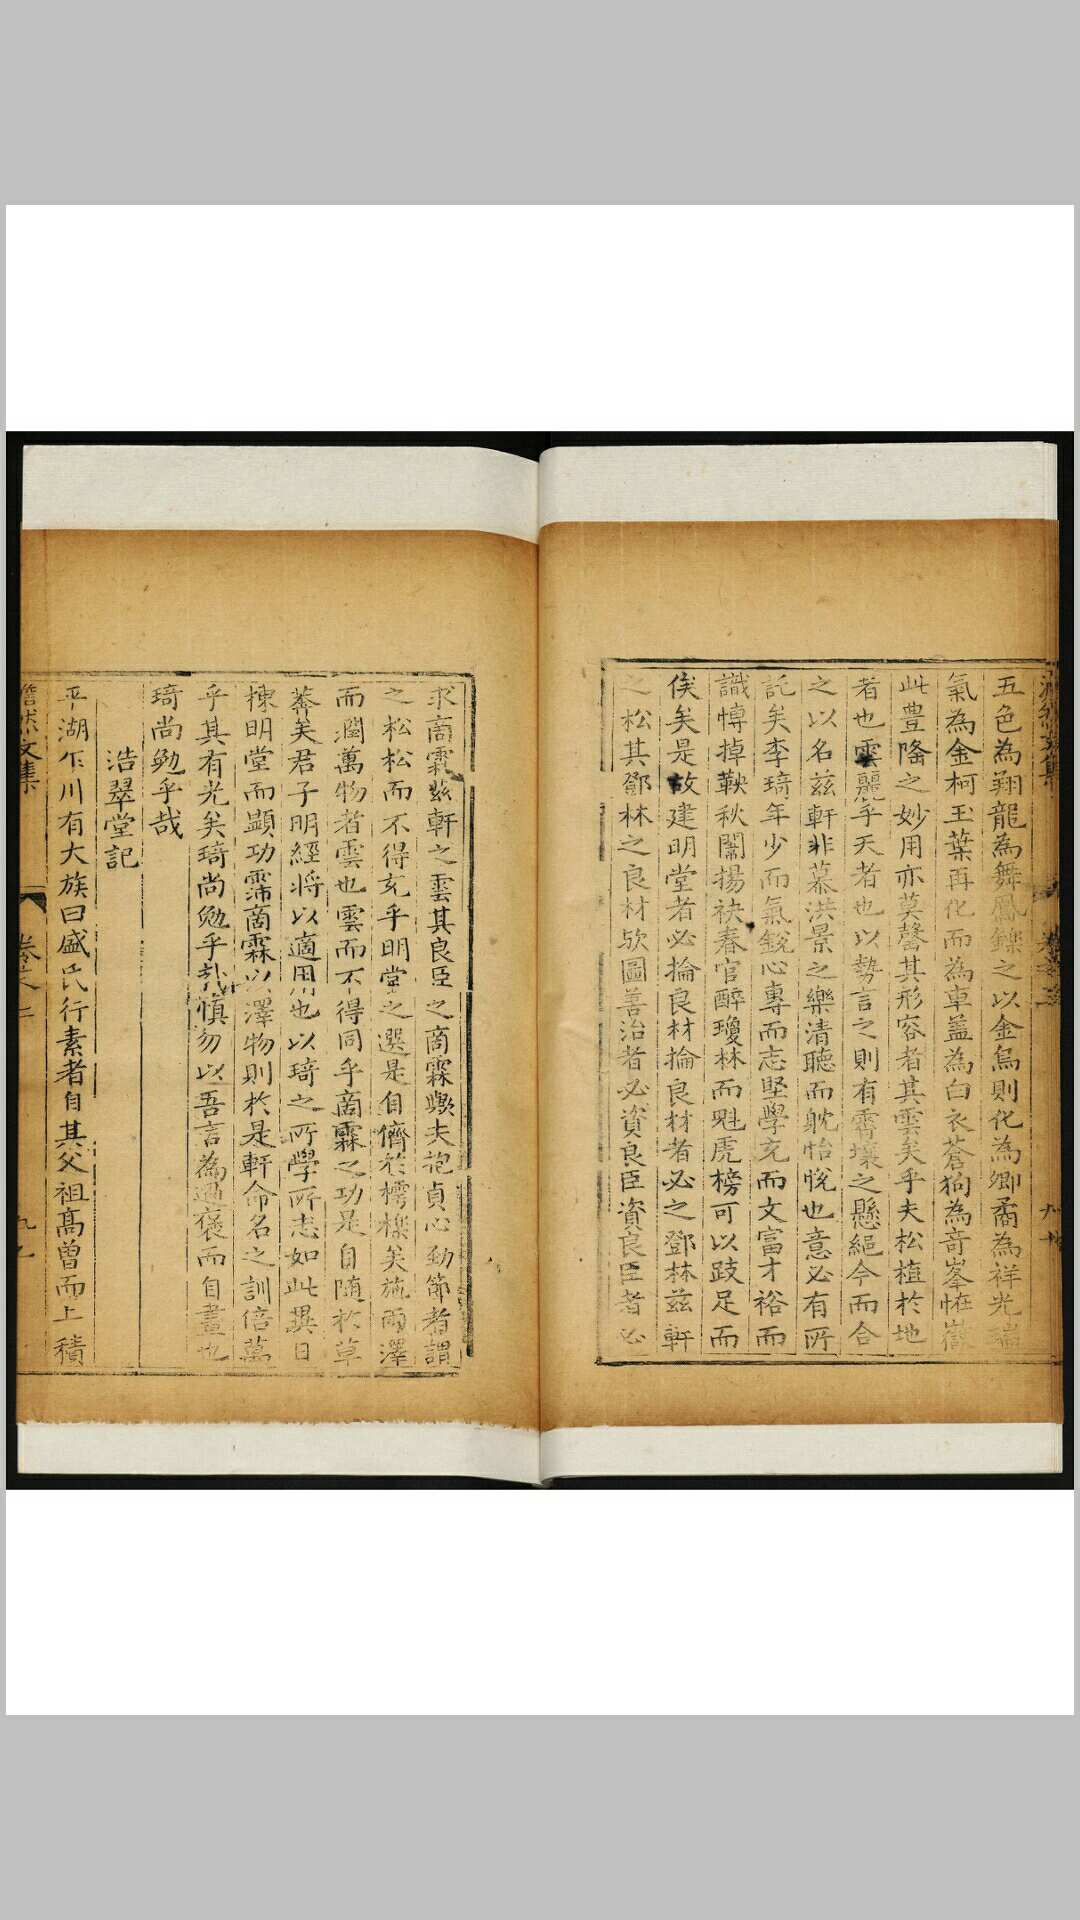 五色為翔龍為舞鳳鑠之以金烏則化為卿矞為祥光瑞
氣為金柯玉葉再化而為車蓋為白衣蒼狗為奇峯恠嶽
此豊隆之妙用亦莫罄其形容者其雲矣乎夫松植於地
者也雲麗乎天者也以勢言之則有霄壤之懸絕今而合
之以名茲軒非慕洪景之樂清聽而躭怡悅也意必有所
託矣李琦年少而氣銳心專而志堅學充而文富才裕而
識慱掉鞅秋闈揚袂春官醉瓊林而魁虎榜可以跂足而
俟矣是故建明堂者必掄良材掄良材者必之鄧林茲軒
之松其鄧林之良材欤圖善治者必資良臣資良臣者必
求啇霖茲軒之雲其良臣之啇霖歟夫抱貞心勁節者謂
之松松而不得充乎明堂之選是自儕於樗櫟矣施雨澤
而潤萬物者雲也雲而不得同乎啇霖之功是自随於草
莾矣君子明經将以適用也以琦之所學所志如此異日
棟明堂而顯功霈啇霖以澤物則於是軒命名之訓倍萬
乎其有光矣琦尚勉乎哉慎勿以吾言為過褒而自畫也
琦尚勉乎哉
浩翠堂記
平湖乍川有大族曰盛氏行素者自其父祖髙曾而上積
文集
卷之二